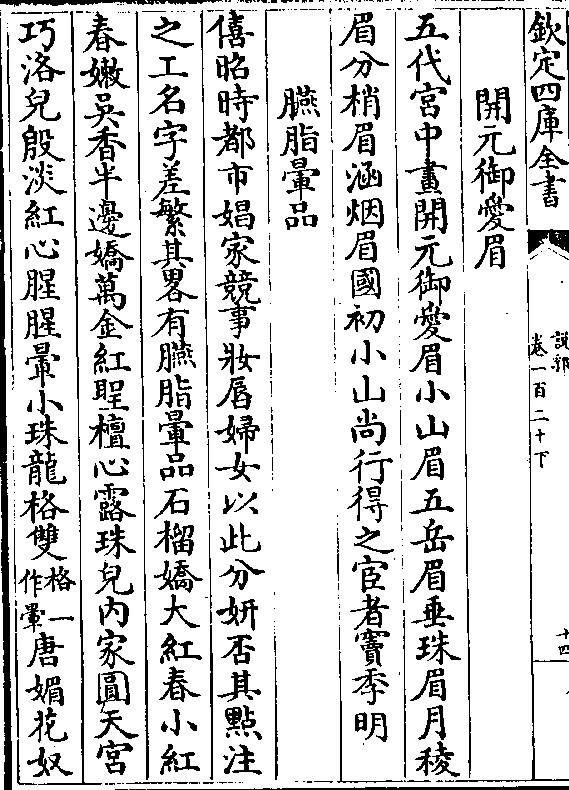 欽定四庫全書
說郛
卷一百二十下
十四
開元御愛眉
五代宮中畫開元御愛眉小山眉五岳眉垂珠眉月稜
眉分梢眉涵烟眉國初小山尚行得之宦者竇季明
臙脂暈品
僖昭時都市娼家競事妝唇婦女以此分妍否其點注
之工名字差繁其畧有臙脂暈品石榴嬌大紅春小紅
春嫩吳香半邊嬌萬金紅聖檀心露珠兒内家圓天宮
巧洛兒殷淡紅心腥腥暈小珠龍格雙格一作暈唐媚花奴